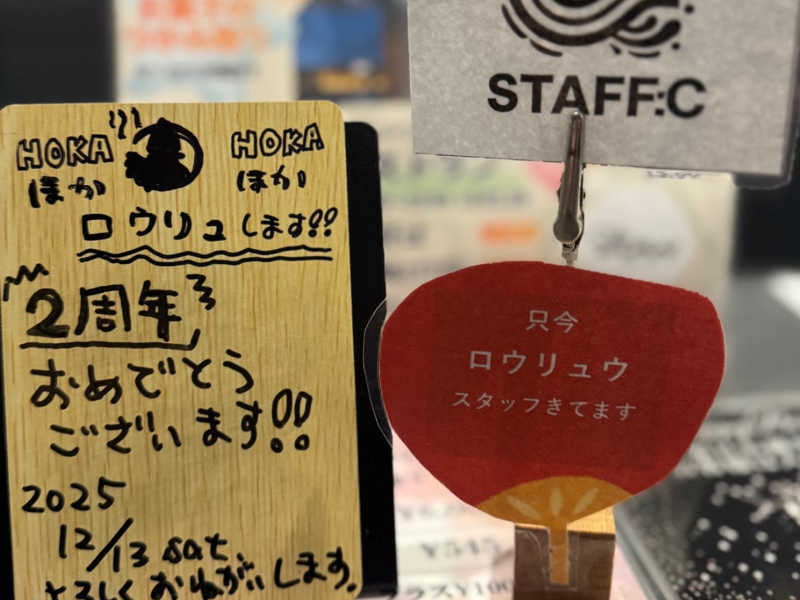 HOKA HOKA
ほか ほか
ロウリュします!!
2周年
おめでとう
ございます!!
2025
12/13 sat
よろしくおねがいします。
STAFF:C
只今
ロウリュウ
スタッフきてます